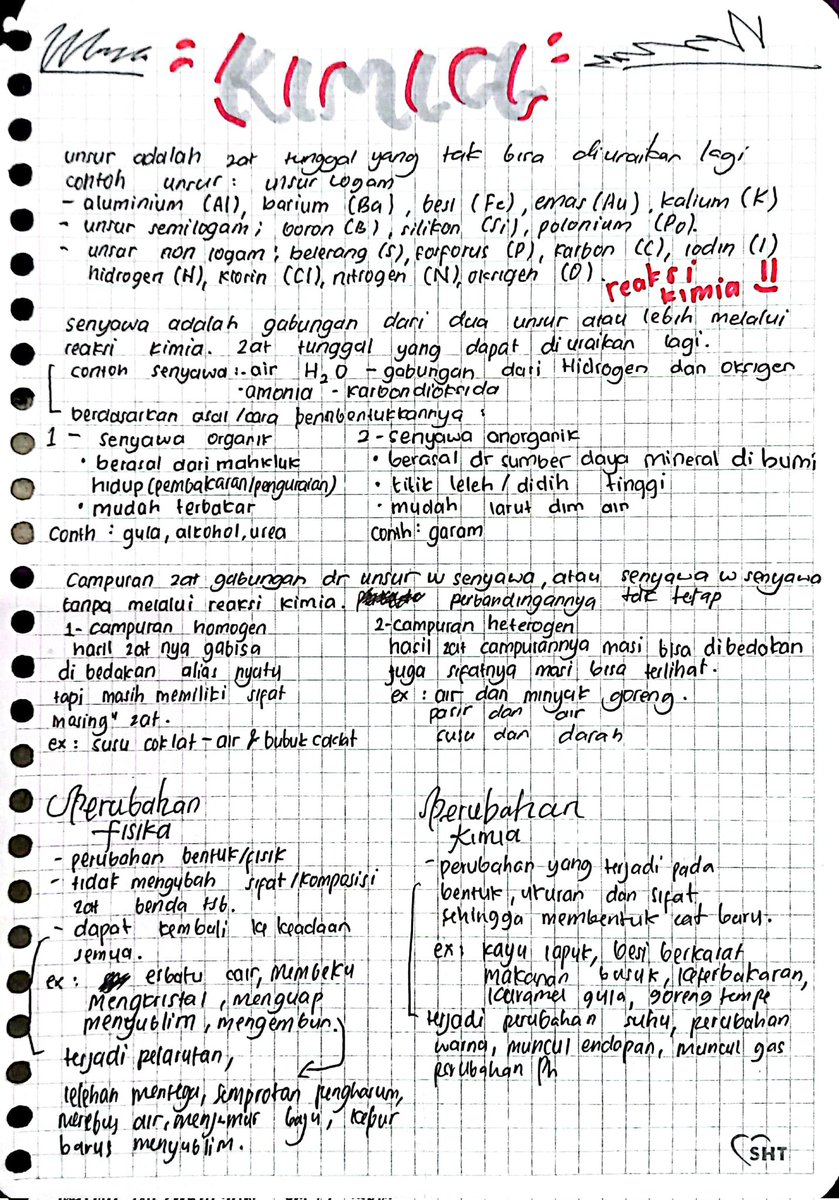 = KIMIA =
unsur adalah zat tunggal yang tak bisa diuraikan lagi
contoh unsur : unsur logam
- aluminium (Al), barium (Ba), besi (Fe), emas (Au), kalium (K)
- unsur semilogam ; boron (B), silikon (Si), polonium (Po).
- unsur non logam ; belerang (S), fosforus (P), karbon (C), iodin (I)
hidrogen (H), klorin (Cl), nitrogen (N), oksigen (O).
reaksi kimia !!
senyawa adalah gabungan dari dua unsur atau lebih melalui
reaksi kimia. zat tunggal yang dapat diuraikan lagi.
contoh senyawa :- air H₂O - gabungan dari Hidrogen dan oksigen
- amonia - karbondioksida
berdasarkan asal/cara pembentukkannya :
1 - senyawa organik
• berasal dari mahkluk
hidup (pembakaran/penguraian)
• mudah terbakar
conth : gula, alkohol, urea
2 - senyawa anorganik
• berasal dr sumber daya mineral di bumi
• titik leleh / didih tinggi
• mudah larut dlm air
conth : garam
Campuran zat gabungan dr unsur w senyawa, atau senyawa w senyawa
tanpa melalui reaksi kimia. perbandingannya tak tetap
1- campuran homogen
hasil zat nya gabisa
di bedakan alias nyatu
tapi masih memiliki sifat
masing" zat.
ex : susu coklat - air & bubuk coklat
2- campuran heterogen
hasil zat campurannya masi bisa dibedakan
juga sifatnya masi bisa terlihat.
ex : air dan minyak goreng.
pasir dan air
susu dan darah
Perubahan
fisika
- perubahan bentuk/fisik
- tidak mengubah sifat/komposisi
zat benda tsb.
- dapat kembali ke keadaan
semula.
ex : esbatu cair, membeku
mengkristal, menguap
menyublim, mengembun.
terjadi pelarutan,
lelehan mentega, semprotan pengharum,
merebus air, menjemur baju, kapur
barus menyublim.
Perubahan
kimia
- perubahan yang terjadi pada
bentuk, ukuran dan sifat
sehingga membentuk zat baru.
ex : kayu lapuk, besi berkarat
makanan busuk, keterbakaran,
karamel gula, goreng tempe
terjadi perubahan suhu, perubahan
warna, muncul endapan, muncul gas
perubahan Ph
SHT